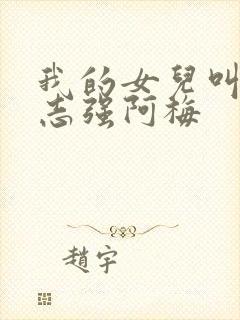 我的女兒叫
志强阿梅
趙宇